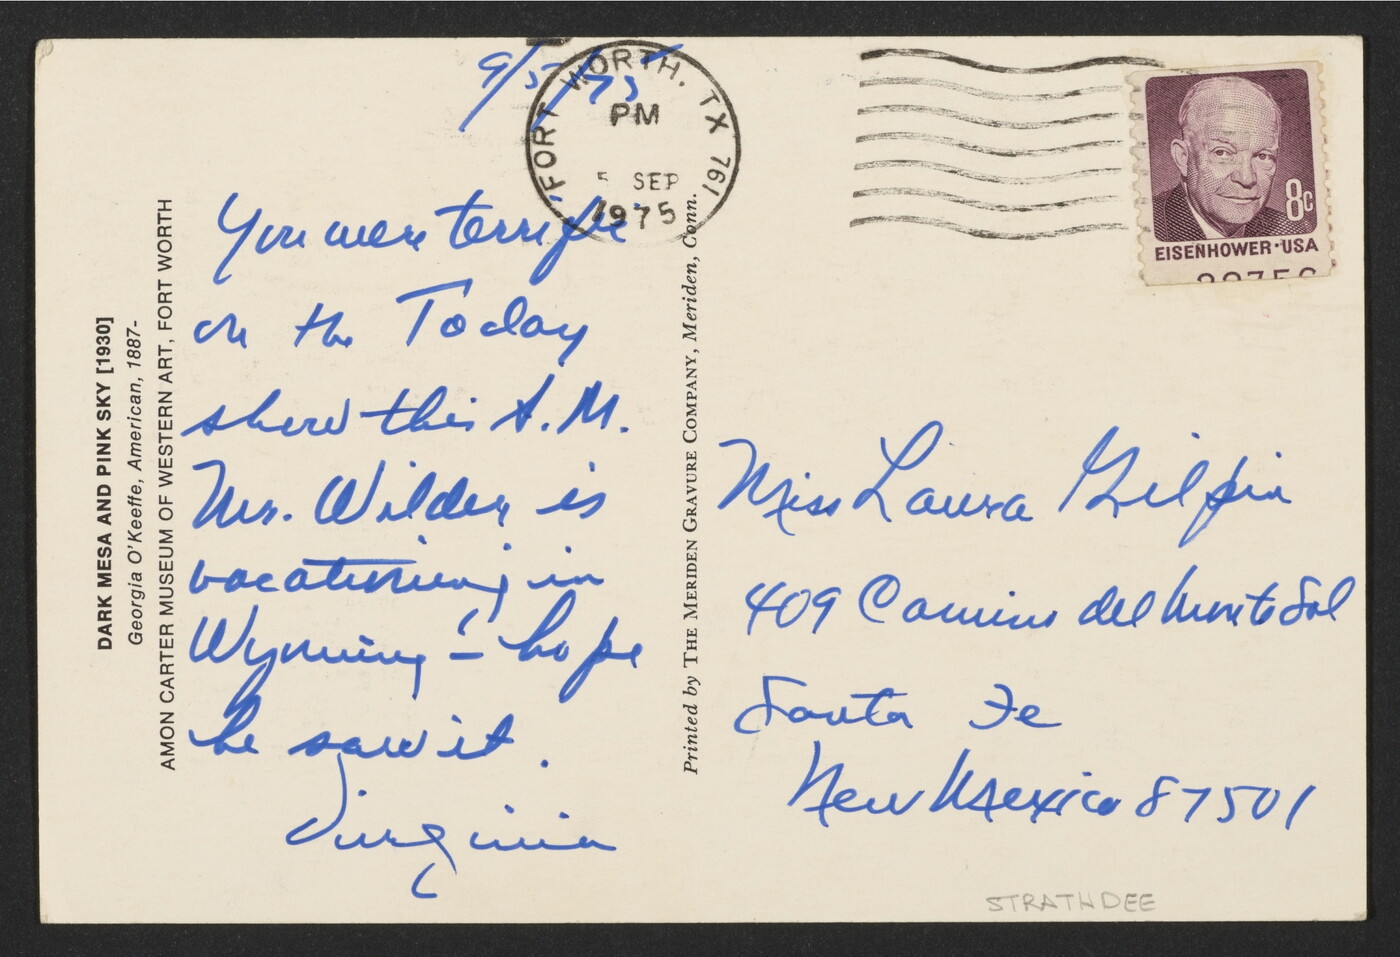 9/5/75
FORT WORTH, TX 761
PM
5 SEP
1975
You were terrific
on the Today
show this A.M.
Mr. Wilder is
vacationing in
Wyoming – hope
he saw it.
Virginia
DARK MESA AND PINK SKY [1930]
Georgia O'Keeffe, American, 1887-
AMON CARTER MUSEUM OF WESTERN ART, FORT WORTH
Printed by THE MERIDEN GRAVURE COMPANY, Meriden, Conn.
8c
EISENHOWER·USA
Miss Laura Gilpin
409 Camino del Monte Sol
Santa Fe
New Mexico 87501
STRATHDEE